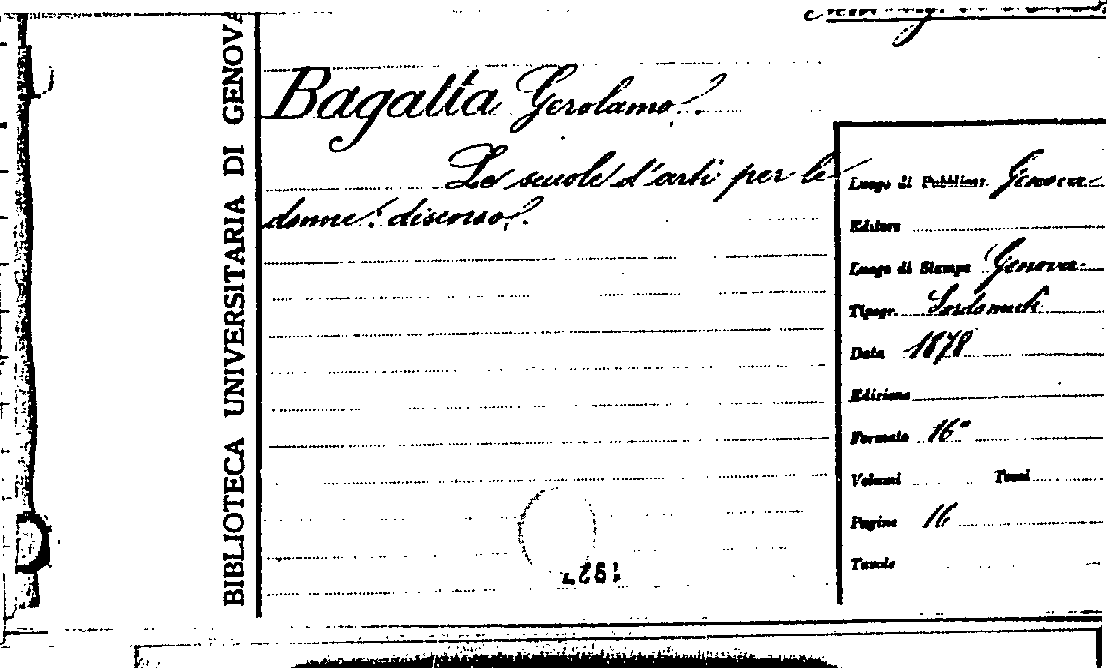 BIBLIOTECA UNIVERSITARIA DI GENOVA
Bagatta Gerolamo.
Le scuole d'arti per le
donne: discorso.
Luogo di Pubblicaz. Genova
Editore
Luogo di Stampa Genova
Tipogr.
Data 1878
Edizione
Formato 16°
Volumi Tomi
Pagine 16
Tavole